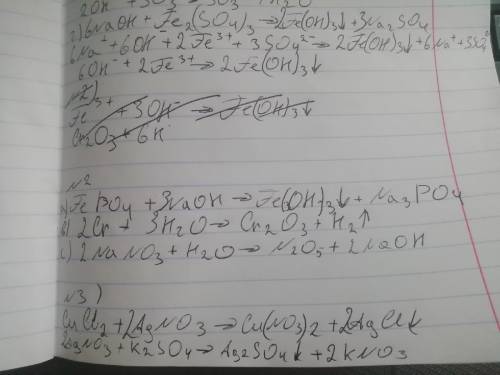 2OH
2) 6NaOH + Fe₂(SO₄)₃ → 2Fe(OH)₃↓ + 3Na₂SO₄
6Na⁺ + 6OH⁻ + 2Fe³⁺ + 3SO₄²⁻ → 2Fe(OH)₃↓ + 6Na⁺ + 3SO₄²⁻
6OH⁻ + 2Fe³⁺ → 2Fe(OH)₃↓
№2)
Fe³⁺ + 3OH⁻ → Fe(OH)₃↓
Cr₂O₃ + 6H
№2
FePO₄ + 3NaOH → Fe(OH)₃↓ + Na₃PO₄
b) 2Cr + 3H₂O → Cr₂O₃ + H₂↑
c) 2NaNO₃ + H₂O → N₂O₅ + 2NaOH
№3)
CuCl₂ + 2AgNO₃ → Cu(NO₃)₂ + 2AgCl↓
2AgNO₃ + K₂SO₄ → Ag₂SO₄↓ + 2KNO₃